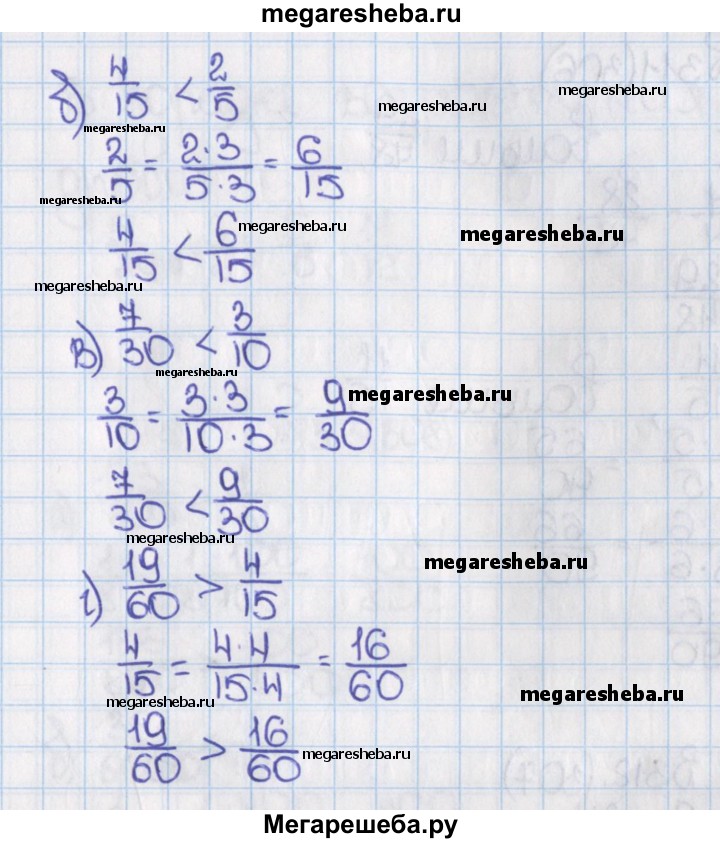 megaresheba.ru
б) 4/15 < 2/5
megaresheba.ru
megaresheba.ru
megaresheba.ru
2/5 = 2·3/5·3 = 6/15
megaresheba.ru
4/15 < 6/15
megaresheba.ru
megaresheba.ru
megaresheba.ru
в) 7/30 < 3/10
megaresheba.ru
3/10 = 3·3/10·3 = 9/30
megaresheba.ru
7/30 < 9/30
megaresheba.ru
г) 19/60 > 4/15
megaresheba.ru
4/15 = 4·4/15·4 = 16/60
megaresheba.ru
megaresheba.ru
19/60 > 16/60
megaresheba.ru
Мегарешеба.ру